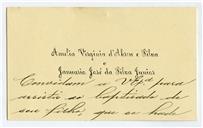 Amelia Virginia d'Abreu e Silva
e
Januario José da Silva Junior
Convidam a V. Exª para
assistir ao baptisado de
seu filho, que se hade